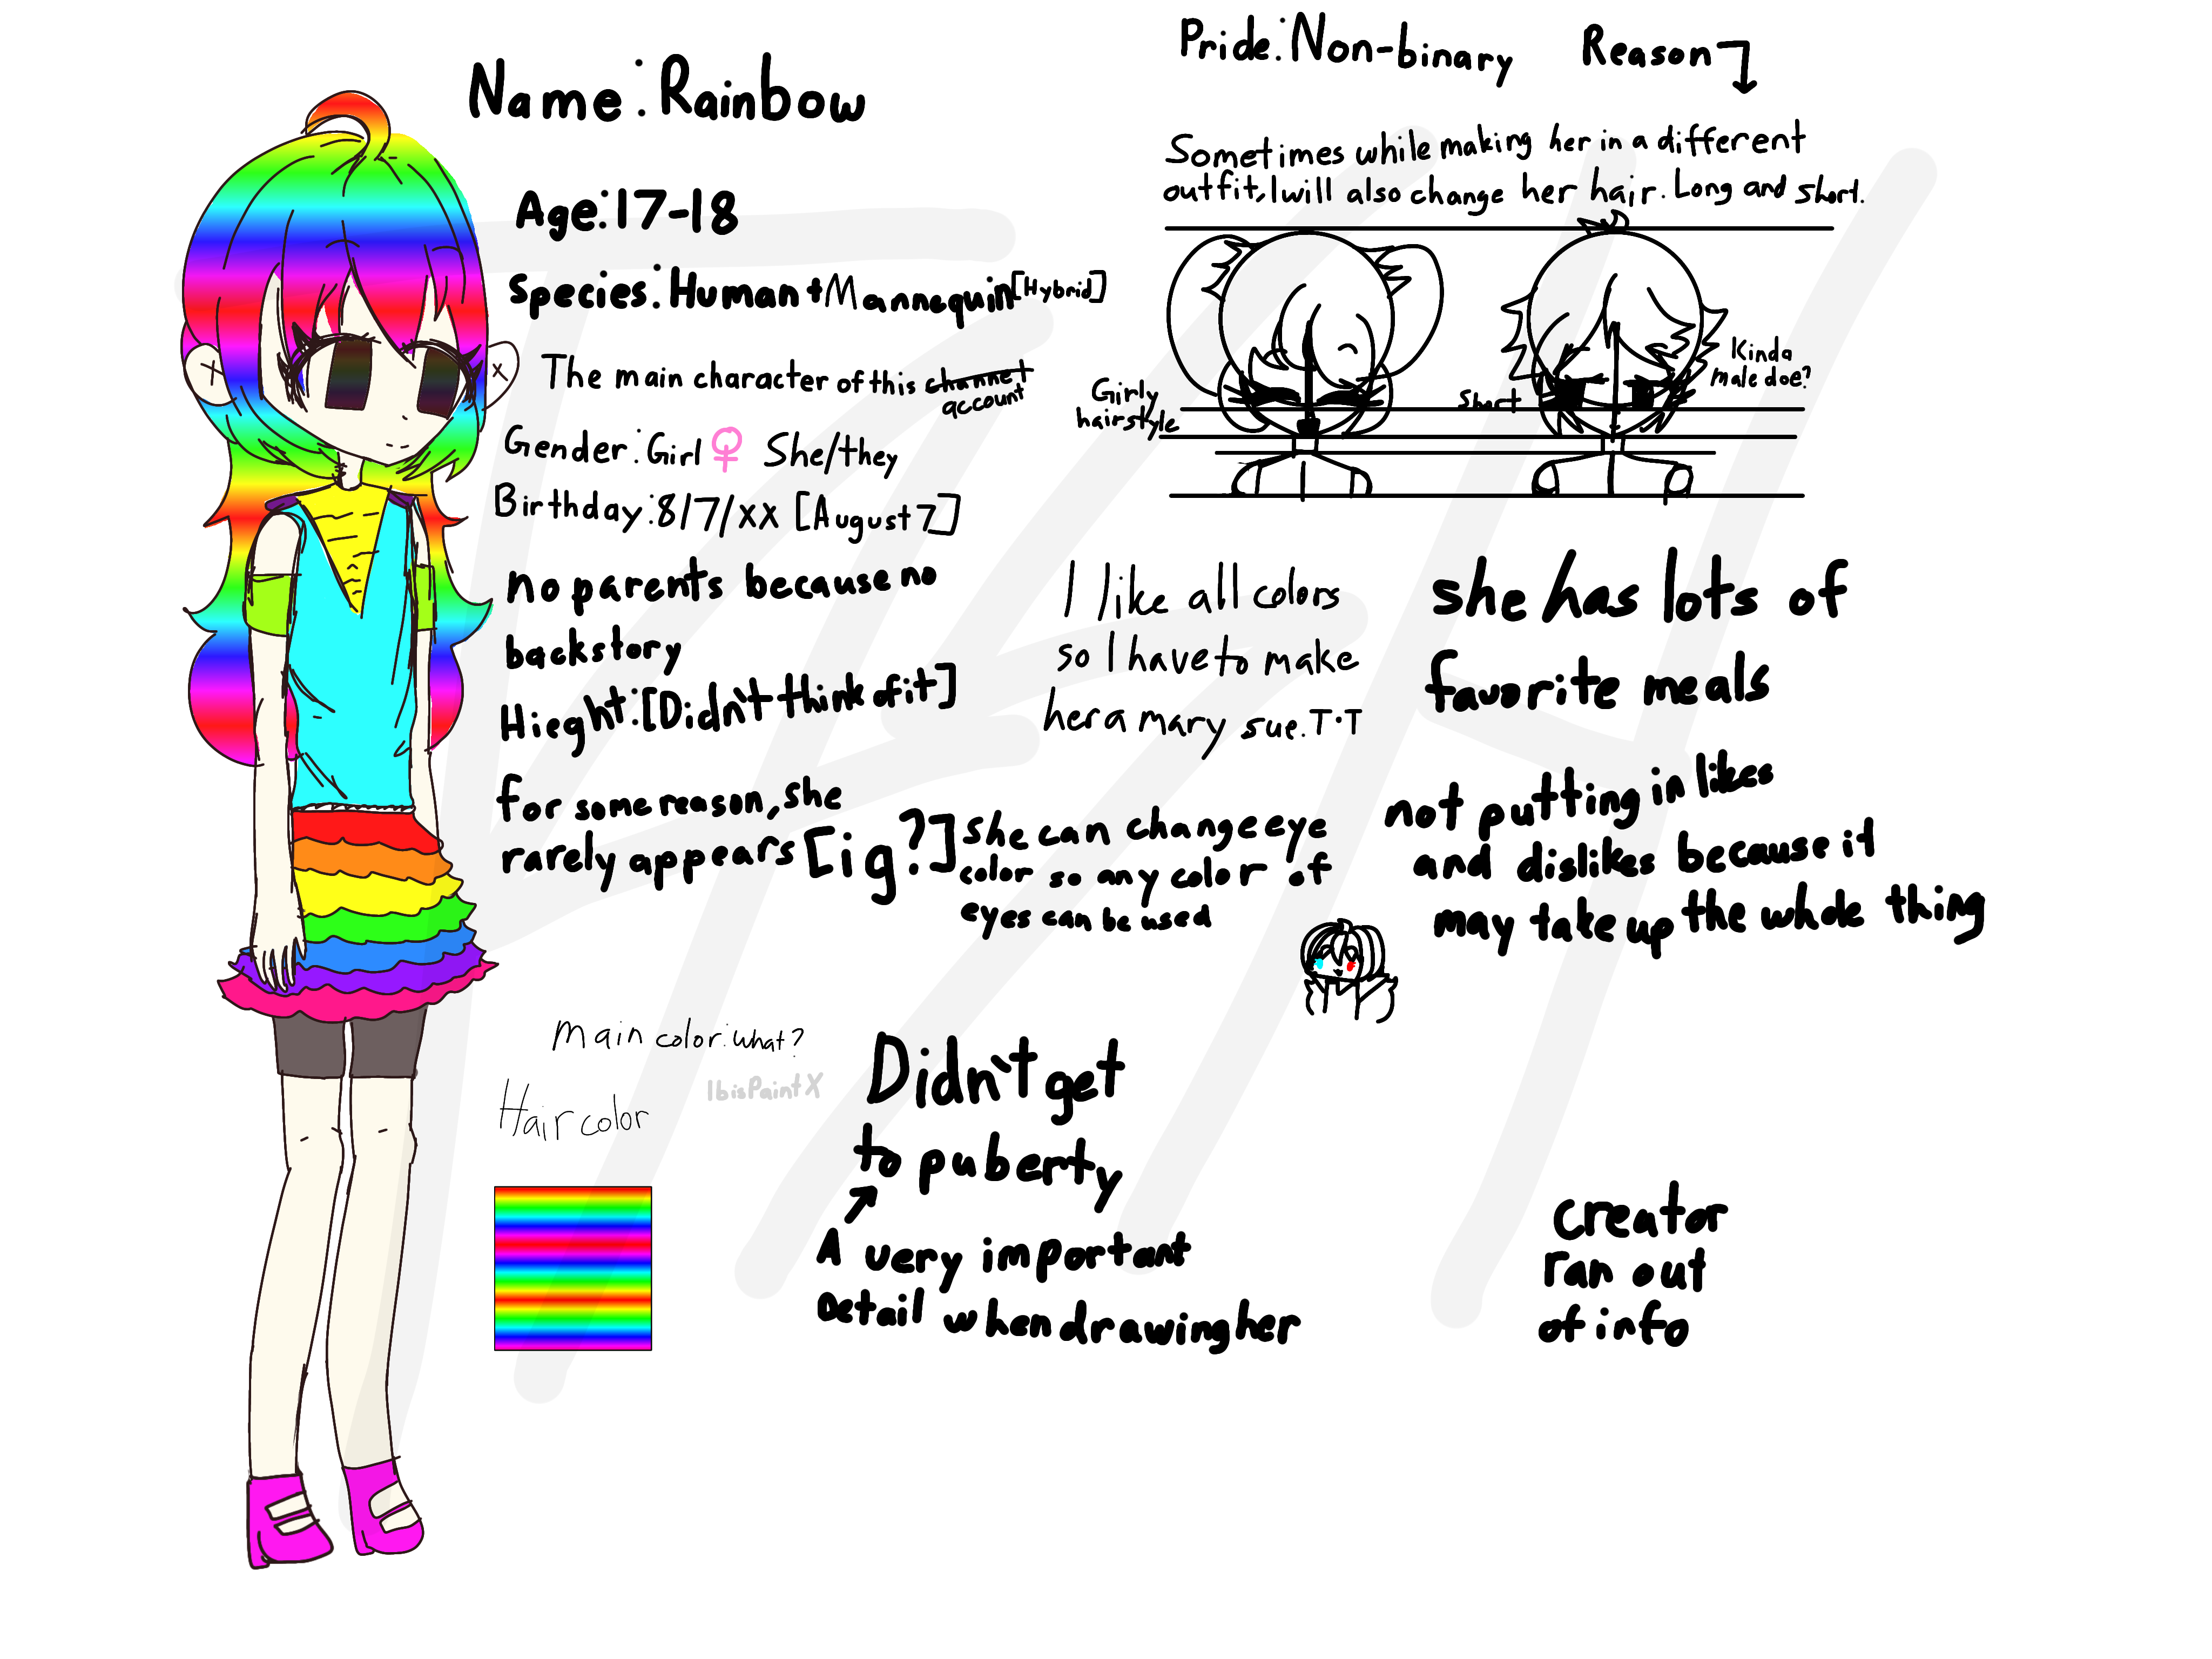 Name:Rainbow
Age:17-18
Species:Human+Mannequin[Hybrid]
The main character of this channel
account
Gender:Girl♀ She/they
Birthday:8/7/xx [August 7]
no parents because no
backstory
Hieght:[Didn't think of it]
for some reason, she
rarely appears [ig?]
Pride:Non-binary Reason
Sometimes while making her in a different
outfit, I will also change her hair. Long and short.
Girly
hairstyle
Short
Kinda
male doe?
I like all colors
so I have to make
her a mary sue. T·T
she has lots of
favorite meals
she can change eye
color so any color of
eyes can be used
not putting in likes
and dislikes because it
may take up the whole thing
Main color:what?
IbisPaintX
Hair color
Didn't get
to puberty
A very important
Detail when drawing her
creator
ran out
of info